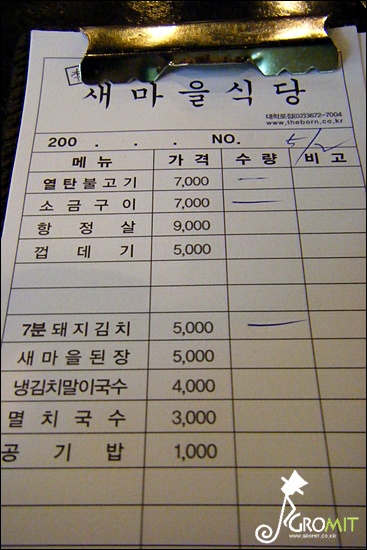 새마을식당
대학로점(02)3672-7004
www.theborn.co.kr
200 . . . NO. 5/2
메뉴 가격 수량 비고
열탄불고기 7,000 —
소금구이 7,000 —
항정살 9,000
껍데기 5,000
7분돼지김치 5,000 —
새마을된장 5,000
냉김치말이국수 4,000
멸치국수 3,000
공기밥 1,000
GROMIT
WWW.GROMIT.CO.KR